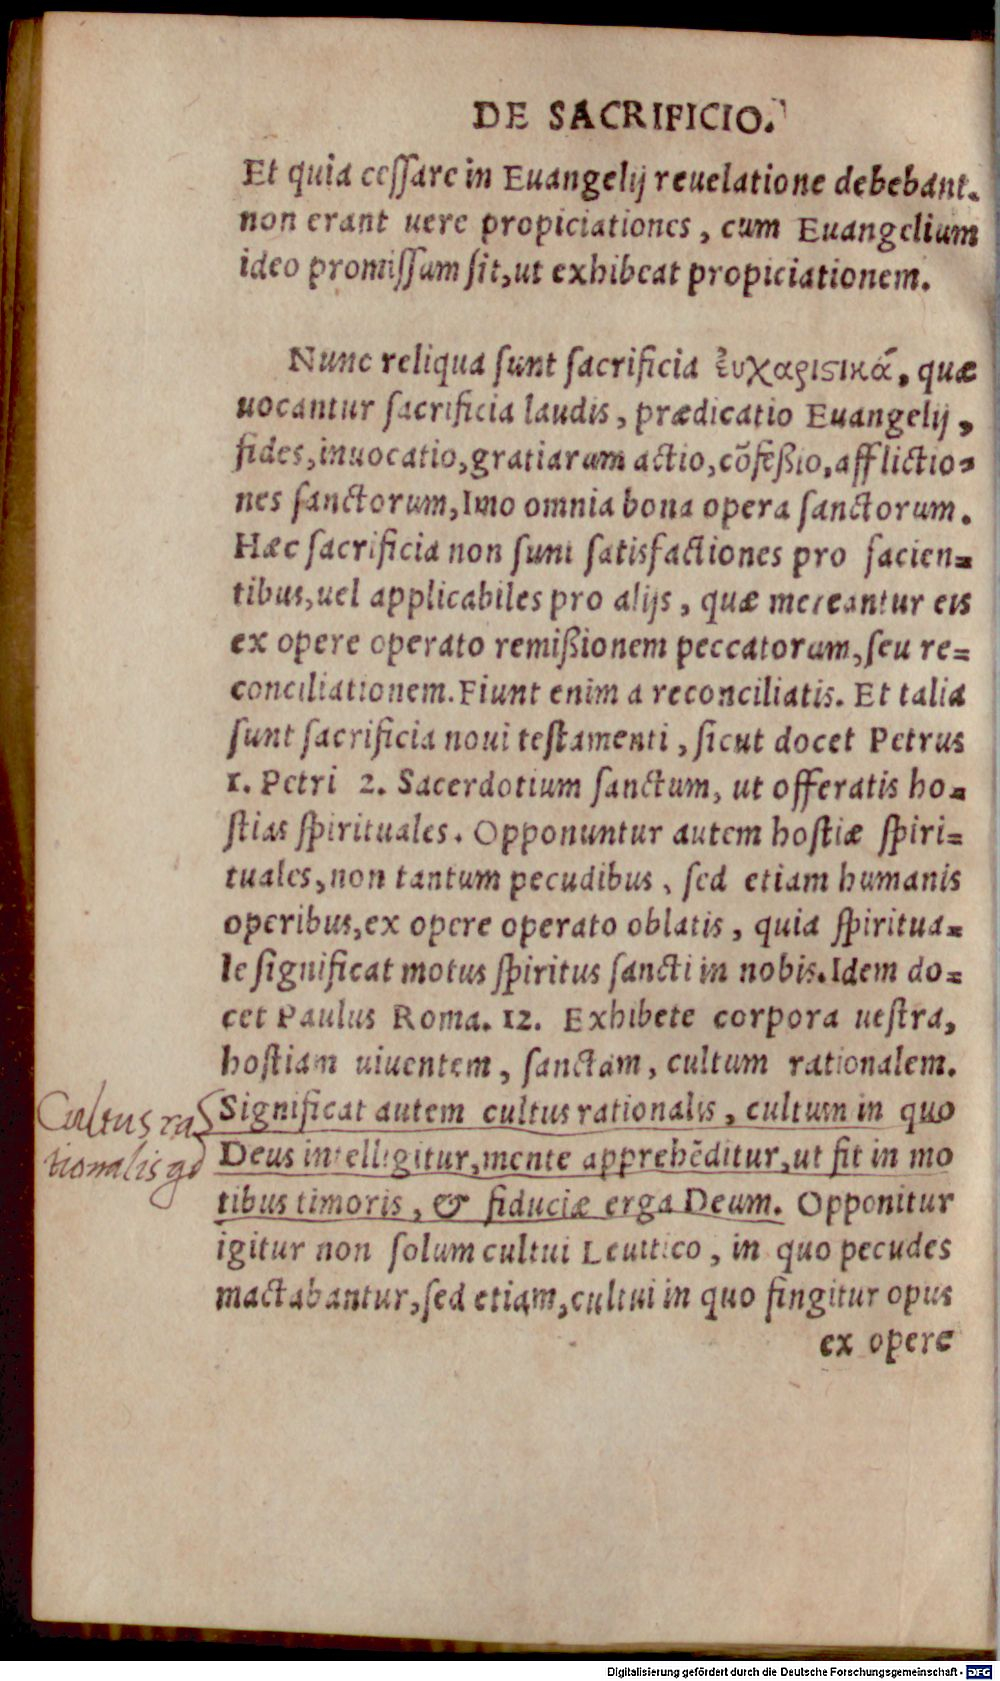 DE SACRIFICIO.
Et quia ceſſare in Euangelij reuelatione debebant.
non erant uere propiciationes, cum Euangelium
ideo promiſſum ſit, ut exhibeat propiciationem.
Nunc reliqua ſunt ſacrificia ἐυχαριϛικά, quæ
uocantur ſacrificia laudis, prædicatio Euangelij,
fides, inuocatio, gratiarum actio, cõfeßio, afflictio-
nes ſanctorum, Imo omnia bona opera ſanctorum.
Hæc ſacrificia non ſunt ſatisfactiones pro facien-
tibus, uel applicabiles pro alijs, quæ mereantur eis
ex opere operato remißionem peccatorum, ſeu re-
conciliationem. Fiunt enim a reconciliatis. Et talia
ſunt ſacrificia noui teſtamenti, ſicut docet Petrus
1. Petri 2. Sacerdotium ſanctum, ut offeratis ho-
ſtias ſpirituales. Opponuntur autem hoſtiæ ſpiri-
tuales, non tantum pecudibus, ſed etiam humanis
operibus, ex opere operato oblatis, quia ſpiritua-
le ſignificat motus ſpiritus ſancti in nobis. Idem do-
cet Paulus Roma. 12. Exhibete corpora ueſtra,
hoſtiam uiuentem, ſanctam, cultum rationalem.
Significat autem cultus rationalis, cultum in quo
Deus intelligitur, mente apprehẽditur, ut fit in mo
tibus timoris, & fiduciæ erga Deum. Opponitur
igitur non ſolum cultui Leuitico, in quo pecudes
mactabantur, ſed etiam, cultui in quo fingitur opus
ex opere
Cultus ra
tionalis qd
Digitalisierung gefördert durch die Deutsche Forschungsgemeinschaft - DFG